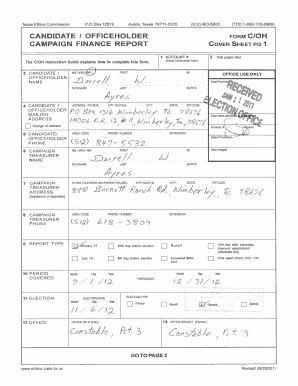 Texas Ethics Commission P.O. Box 12070 Austin, Texas 78711-2070 (512) 463-5800 (TDD 1-800-735-2989)
CANDIDATE / OFFICEHOLDER FORM C/OH
CAMPAIGN FINANCE REPORT COVER SHEET PG 1
The C/OH Instruction Guide explains how to complete this form.
1 ACCOUNT #
2 Total pages filed:
3 CANDIDATE / OFFICEHOLDER NAME
MS / MRS / MR FIRST MI
Darrell W.
NICKNAME LAST SUFFIX
Ayres
OFFICE USE ONLY
RECEIVED
ELECTION OFFICE
4 CANDIDATE / OFFICEHOLDER MAILING ADDRESS
change of address
ADDRESS / PO BOX; APT / SUITE #; CITY; STATE; ZIP CODE
PO Box 1316 Wimberley Tx 78676
14306 R.R. 12 #11, Wimberley, Tx 78676
5 CANDIDATE / OFFICEHOLDER PHONE
AREA CODE PHONE NUMBER EXTENSION
(512) 847-5532
6 CAMPAIGN TREASURER NAME
MS / MRS / MR FIRST MI
Darrell W.
NICKNAME LAST SUFFIX
Ayres
7 CAMPAIGN TREASURER ADDRESS
(residence or business)
888 Burnett Ranch Rd, Wimberley, Tx 78676
8 CAMPAIGN TREASURER PHONE
AREA CODE PHONE NUMBER EXTENSION
(512) 618-3809
9 REPORT TYPE
January 15 30th day before election Runoff 15th day after campaign treasurer appointment (officeholder only)
July 15 8th day before election Exceeded $500 limit
10 PERIOD COVERED
Month Day Year THROUGH Month Day Year
7 / 1 / 12 12 / 31 / 12
11 ELECTION
ELECTION DATE
Month Day Year
11 / 6 / 12
ELECTION TYPE
Primary Runoff General Special
12 OFFICE
OFFICE HELD (if any)
Constable, Pct. 3
13 OFFICE SOUGHT (if known)
Constable, Pct 3
GO TO PAGE 2
www.ethics.state.tx.us